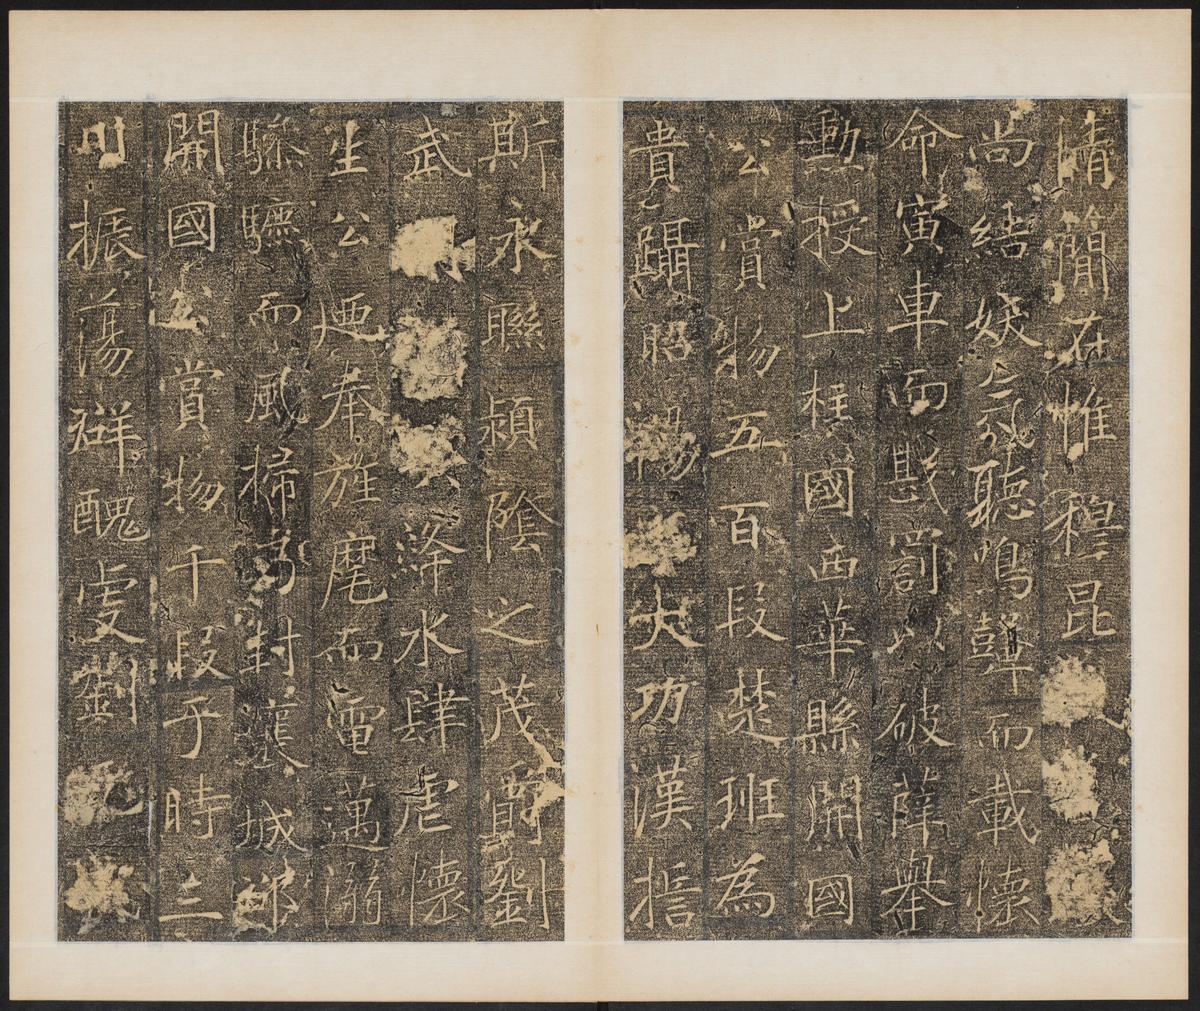 清簡在惟穆昆
尚結妖氛聽鳴鼙而載懷
命寅車而戡罰以破薛舉
勳授上柱國西華縣開國
公賞物五百段楚班為
貴躡昭陽大功漢㧞
斯永聯潁陰之茂爵劉
武絳水肆虐懷
生公迺奉旌麾而電邁溺
驂驦而風掃功封瀼城郡
開國公賞物千段于時三
川振蕩群醜虔劉